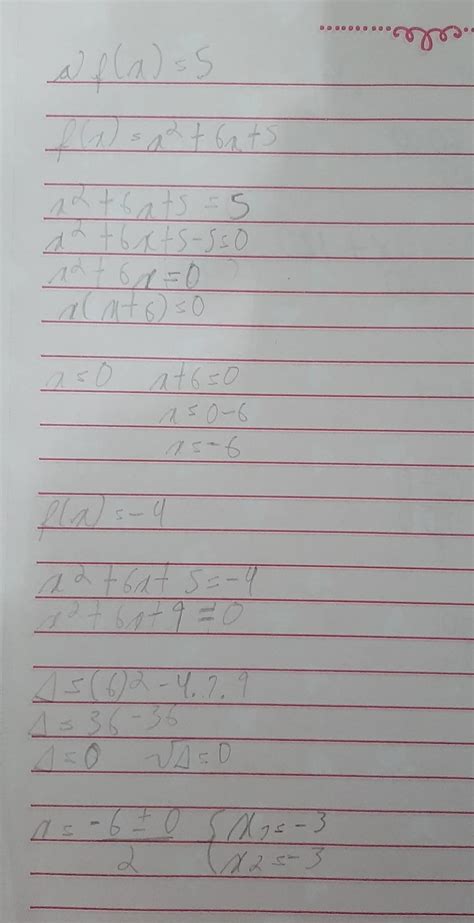 a) f(x) = 5
f(x) = x² + 6x + 5
x² + 6x + 5 = 5
x² + 6x + 5 - 5 = 0
x² + 6x = 0
x(x + 6) = 0
x = 0 x + 6 = 0
x = 0 - 6
x = -6
f(x) = -4
x² + 6x + 5 = -4
x² + 6x + 9 = 0
Δ = (6)² - 4.1.9
Δ = 36 - 36
Δ = 0 √Δ = 0
x = -6 ± 0 { x1 = -3
2 { x2 = -3